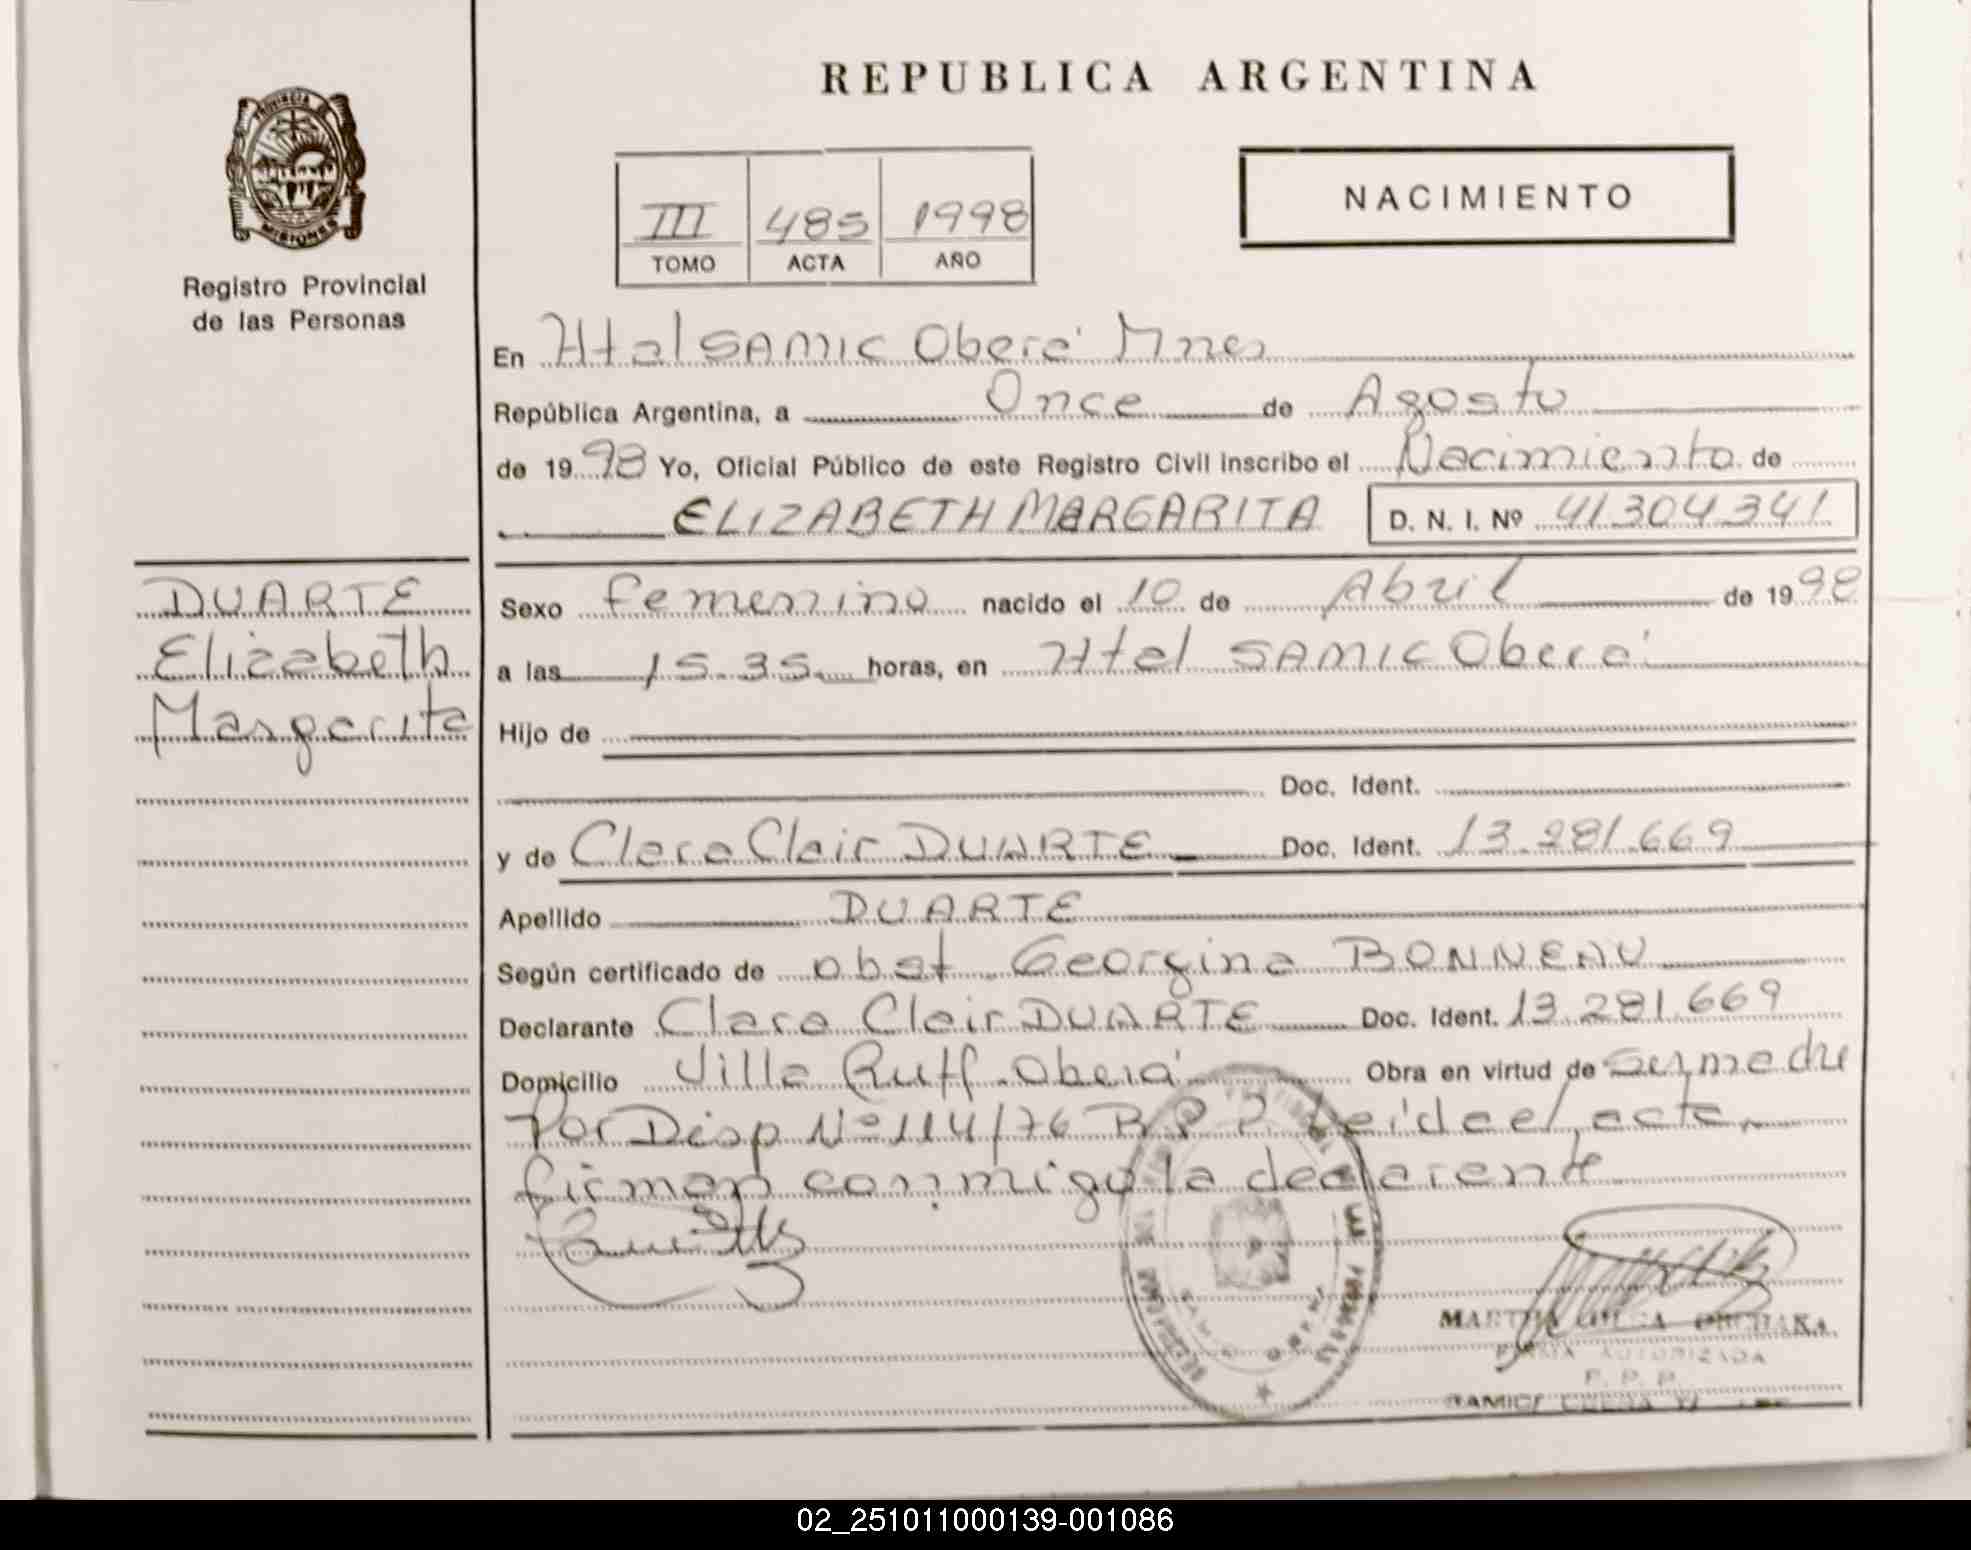 REPUBLICA ARGENTINA
PROVINCIA DE
MISIONES
Registro Provincial
de las Personas
III 485 1998
TOMO ACTA AÑO
NACIMIENTO
En Htal SAMIC Oberá Mnes
República Argentina, a Once de Agosto
de 1998 Yo, Oficial Público de este Registro Civil inscribo el Nacimiento de
ELIZABETH MARGARITA D. N. I. Nº 41304341
DUARTE
Elizabeth
Margarita
Sexo femenino nacido el 10 de Abril de 1998
a las 15.35 horas, en Htal SAMIC Oberá
Hijo de
Doc. Ident.
y de Clara Clair DUARTE Doc. Ident. 13.281.669
Apellido DUARTE
Según certificado de obst Georgina BONNEAU
Declarante Clara Clair DUARTE Doc. Ident. 13.281.669
Domicilio Villa Ruff Oberá Obra en virtud de ser madre
Por Disp Nº 114/76 R.P.P. Leída el acta
firman conmigo la declarante
MARTHA OLGA
FIRMA AUTORIZADA
R. P. P.
02_251011000139-001086